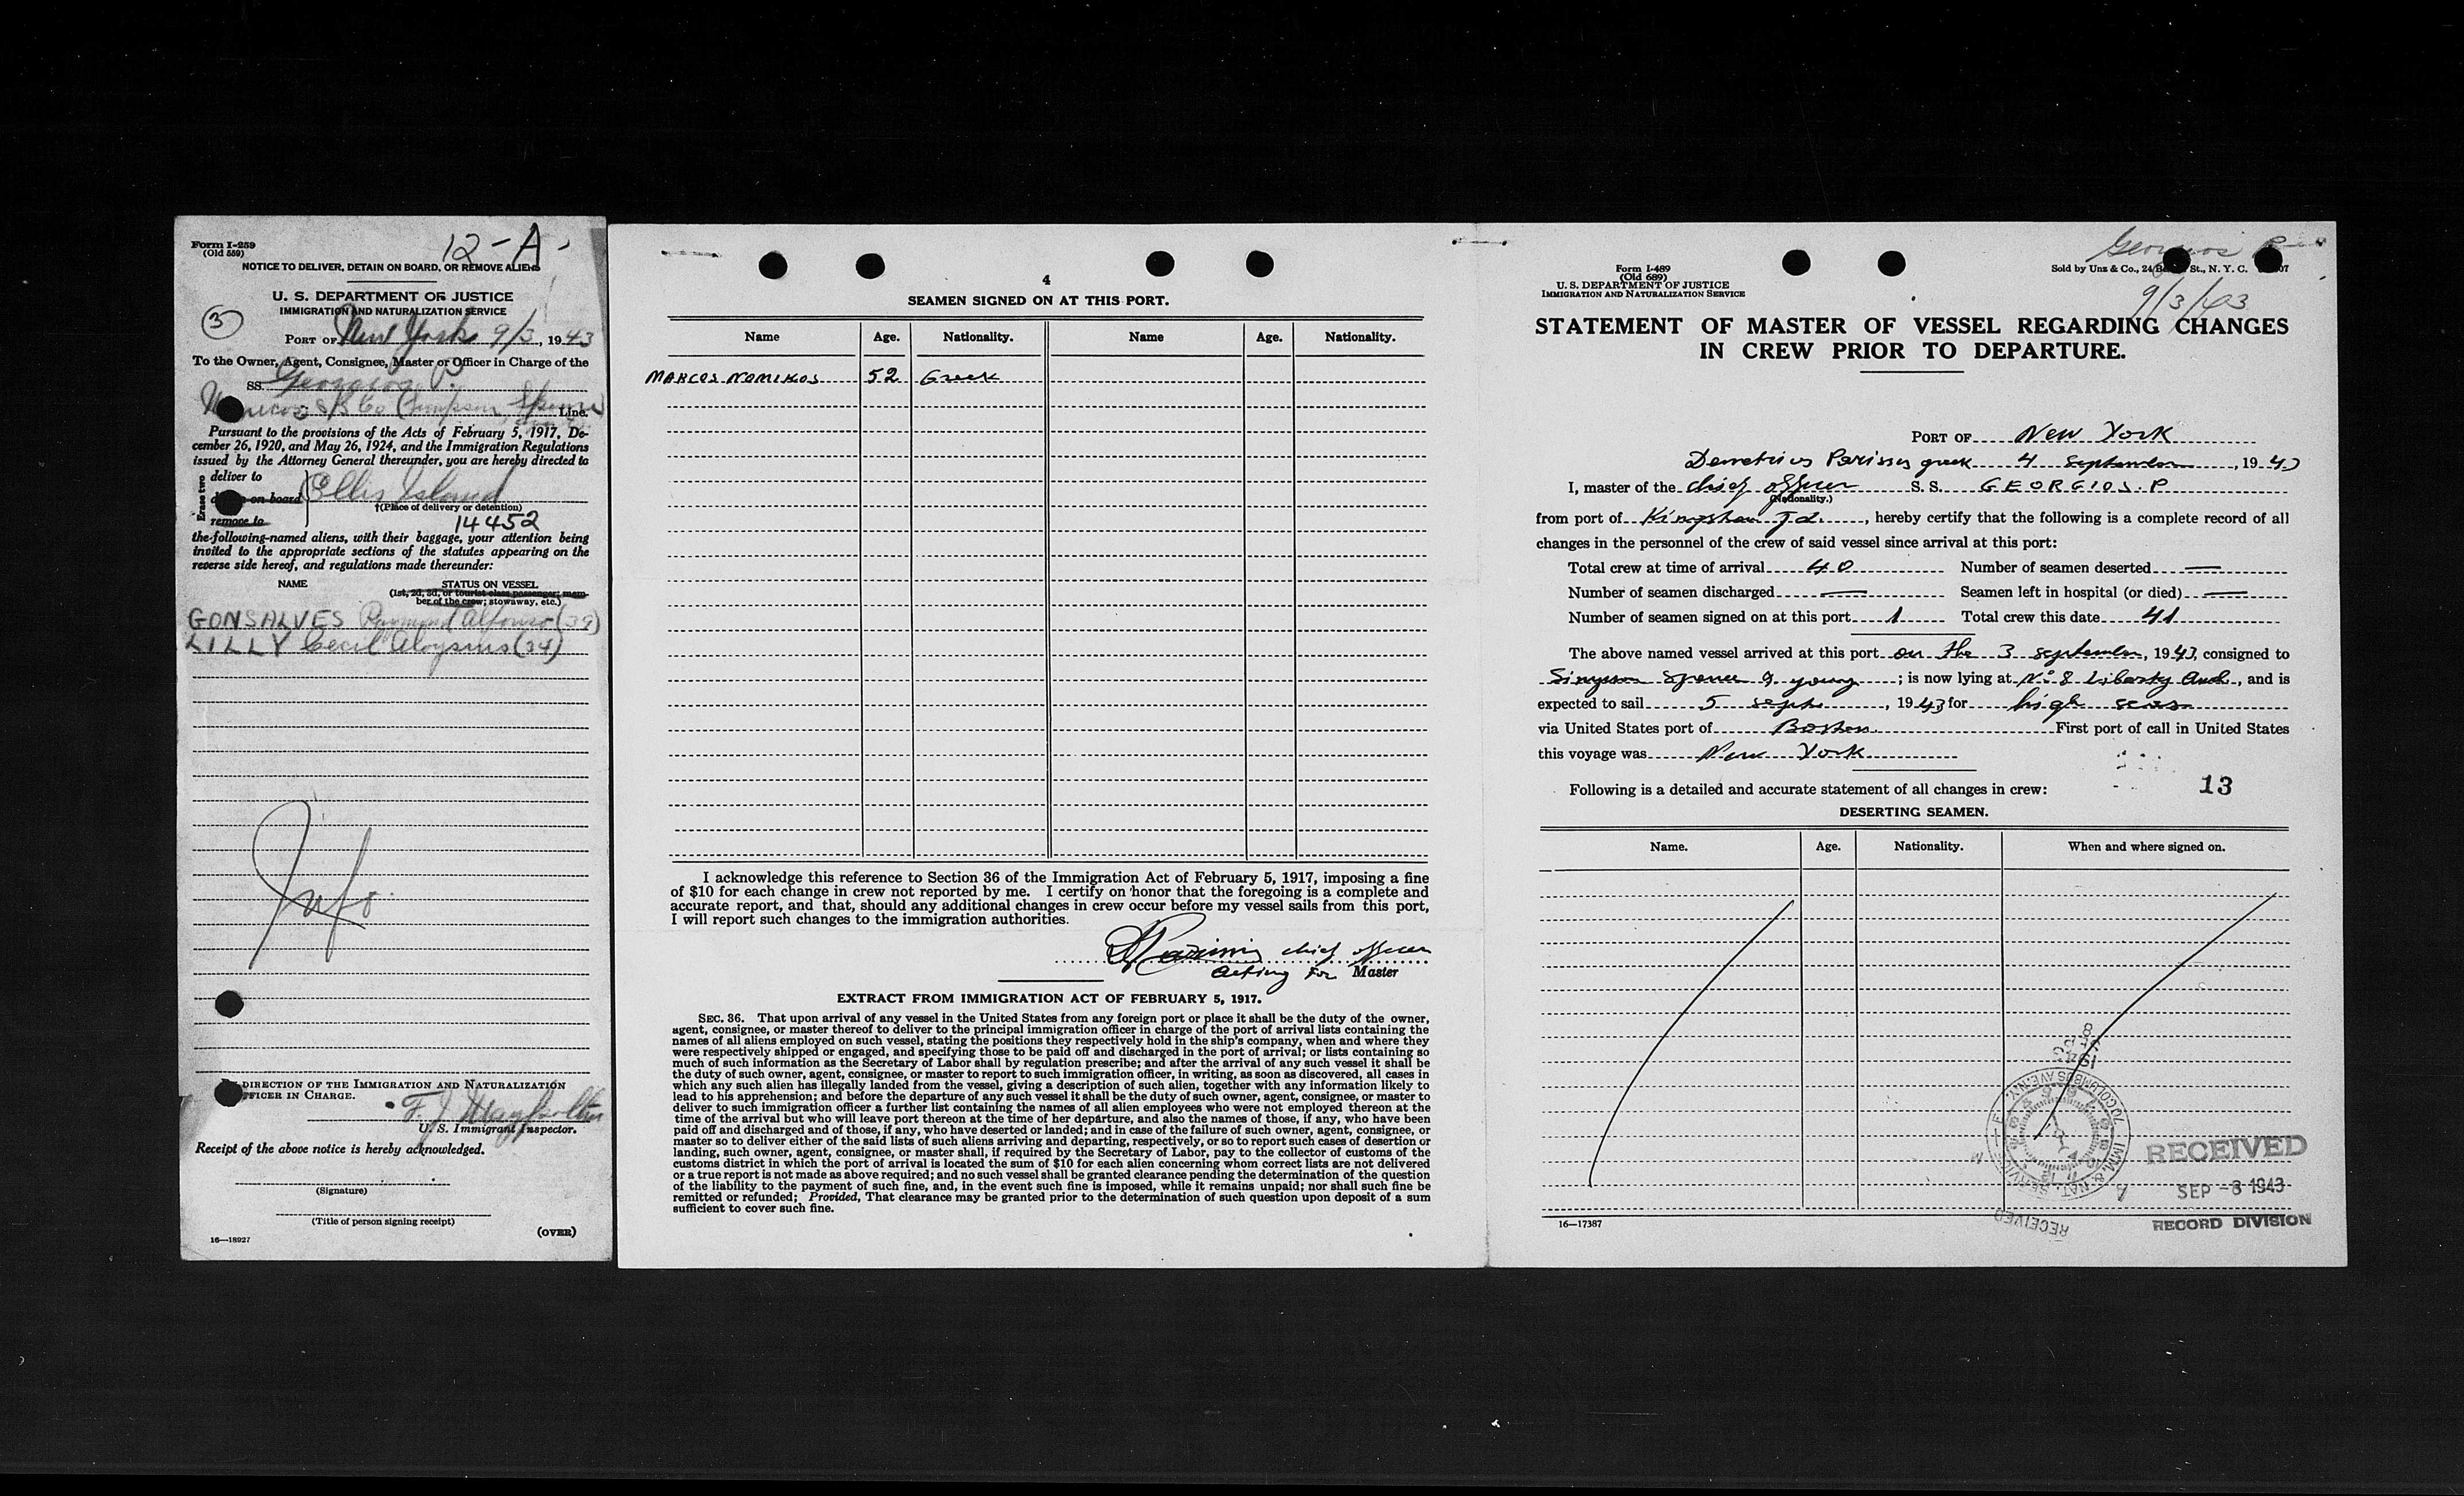 Form I-259
(Old 559)
12-A-
NOTICE TO DELIVER, DETAIN ON BOARD, OR REMOVE ALIENS
U. S. DEPARTMENT OF JUSTICE
IMMIGRATION AND NATURALIZATION SERVICE
3
PORT OF New York 9/3, 1943
To the Owner, Agent, Consignee, Master or Officer in Charge of the
SS. Georgios P.
Line.
Pursuant to the provisions of the Acts of February 5, 1917, De-
cember 26, 1920, and May 26, 1924, and the Immigration Regulations
issued by the Attorney General thereunder, you are hereby directed to
Erase two
deliver to
on board
remove to
Ellis Island
†(Place of delivery or detention)
14452
the following-named aliens, with their baggage, your attention being
invited to the appropriate sections of the statutes appearing on the
reverse side hereof, and regulations made thereunder:
NAME STATUS ON VESSEL
(1st, 2d, 3d, or tourist class passenger; mem-
ber of the crew; stowaway, etc.)
GONSALVES Raymond Alfonso (39)
LILLY Cecil Aloysius (34)
DIRECTION OF THE IMMIGRATION AND NATURALIZATION
OFFICER IN CHARGE.
F. J.
U. S. Immigrant Inspector.
Receipt of the above notice is hereby acknowledged.
(Signature)
(Title of person signing receipt)
16—18927
(OVER)
4
SEAMEN SIGNED ON AT THIS PORT.
Name Age. Nationality. Name Age. Nationality.
MARCOS NOMIKOS 52 Greek
I acknowledge this reference to Section 36 of the Immigration Act of February 5, 1917, imposing a fine
of $10 for each change in crew not reported by me. I certify on honor that the foregoing is a complete and
accurate report, and that, should any additional changes in crew occur before my vessel sails from this port,
I will report such changes to the immigration authorities.
chief officer
acting for Master
EXTRACT FROM IMMIGRATION ACT OF FEBRUARY 5, 1917.
SEC. 36. That upon arrival of any vessel in the United States from any foreign port or place it shall be the duty of the owner,
agent, consignee, or master thereof to deliver to the principal immigration officer in charge of the port of arrival lists containing the
names of all aliens employed on such vessel, stating the positions they respectively hold in the ship's company, when and where they
were respectively shipped or engaged, and specifying those to be paid off and discharged in the port of arrival; or lists containing so
much of such information as the Secretary of Labor shall by regulation prescribe; and after the arrival of any such vessel it shall be
the duty of such owner, agent, consignee, or master to report to such immigration officer, in writing, as soon as discovered, all cases in
which any such alien has illegally landed from the vessel, giving a description of such alien, together with any information likely to
lead to his apprehension; and before the departure of any such vessel it shall be the duty of such owner, agent, consignee, or master to
deliver to such immigration officer a further list containing the names of all alien employees who were not employed thereon at the
time of the arrival but who will leave port thereon at the time of her departure, and also the names of those, if any, who have been
paid off and discharged and of those, if any, who have deserted or landed; and in case of the failure of such owner, agent, consignee, or
master so to deliver either of the said lists of such aliens arriving and departing, respectively, or so to report such cases of desertion or
landing, such owner, agent, consignee, or master shall, if required by the Secretary of Labor, pay to the collector of customs of the
customs district in which the port of arrival is located the sum of $10 for each alien concerning whom correct lists are not delivered
or a true report is not made as above required; and no such vessel shall be granted clearance pending the determination of the question
of the liability to the payment of such fine, and, in the event such fine is imposed, while it remains unpaid; nor shall such fine be
remitted or refunded; Provided, That clearance may be granted prior to the determination of such question upon deposit of a sum
sufficient to cover such fine.
Georgios P
Form I-489
(Old 689)
U. S. DEPARTMENT OF JUSTICE
IMMIGRATION AND NATURALIZATION SERVICE
Sold by Unz & Co., 24 St., N. Y. C.
9/3/43
STATEMENT OF MASTER OF VESSEL REGARDING CHANGES
IN CREW PRIOR TO DEPARTURE.
PORT OF New York
Demetrios Parissis greek 4 september, 1943
I, master of the chief officer S. S. GEORGIOS. P
(Nationality.)
from port of Kingston Jd., hereby certify that the following is a complete record of all
changes in the personnel of the crew of said vessel since arrival at this port:
Total crew at time of arrival 40 Number of seamen deserted —
Number of seamen discharged — Seamen left in hospital (or died) —
Number of seamen signed on at this port 1 Total crew this date 41
The above named vessel arrived at this port on the 3 september, 1943, consigned to
Simpson Spence & young; is now lying at No 8 Liberty Anch, and is
expected to sail 5 sept, 1943 for high seas
via United States port of Boston First port of call in United States
this voyage was New York
Following is a detailed and accurate statement of all changes in crew:
13
DESERTING SEAMEN.
Name. Age. Nationality. When and where signed on.
16—17387
70 COLUMBUS AVE. N.Y.
IMM. & NAT. SERVICE
RECEIVED
RECEIVED
SEP -8 1943
RECORD DIVISION